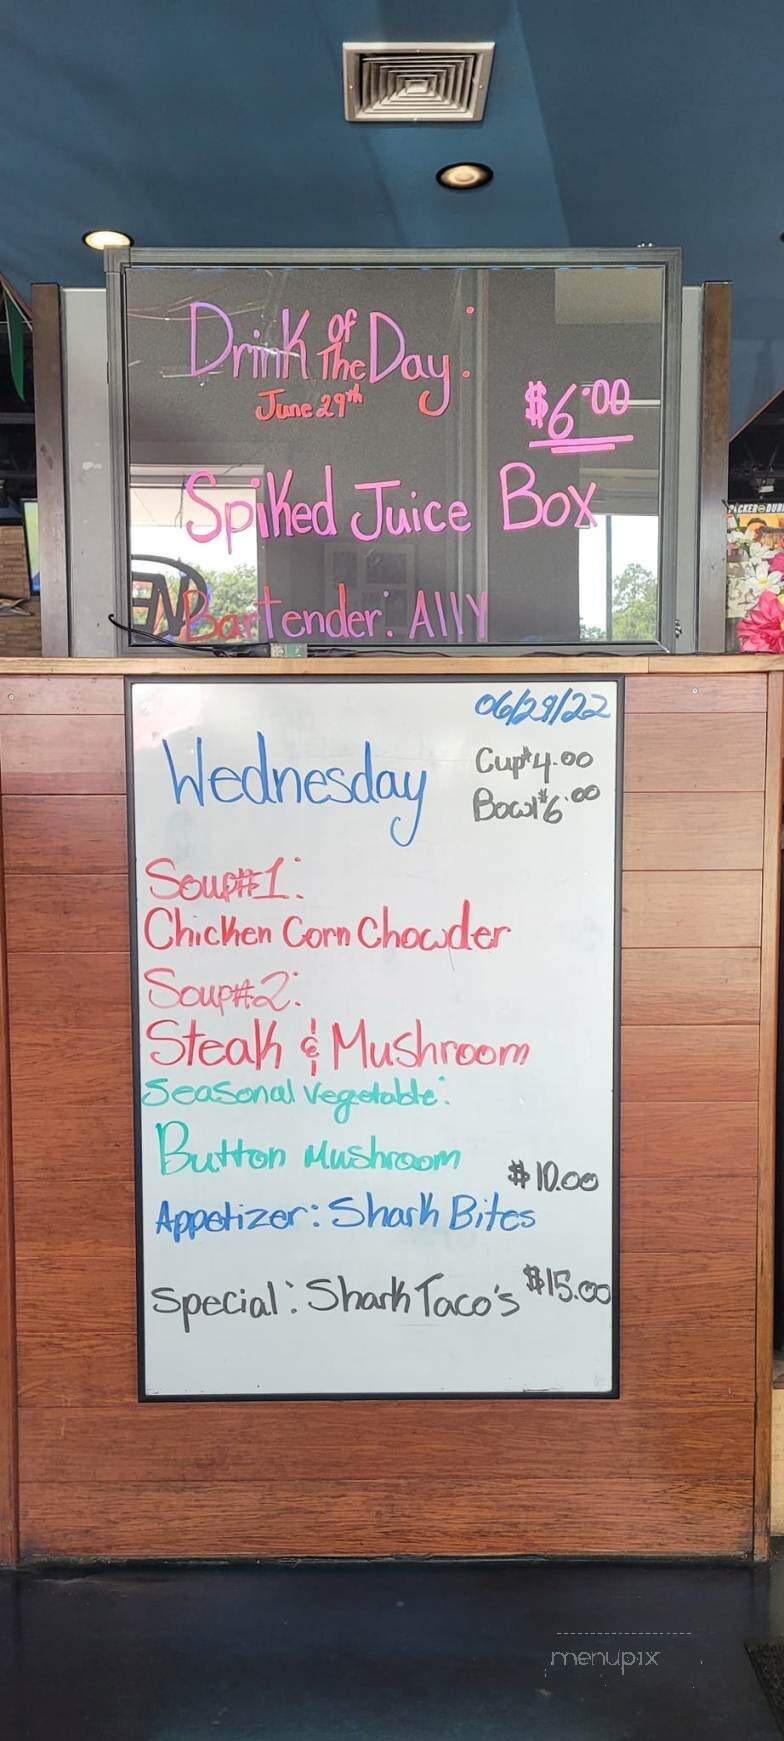 Drink Of The Day:
June 29th
$6.00
Spiked Juice Box
Bartender: Ally
06/29/22
Wednesday
Cup $4.00
Bowl $6.00
Soup#1:
Chicken Corn Chowder
Soup#2:
Steak & Mushroom
Seasonal Vegetable:
Button Mushroom
$10.00
Appetizer: Shark Bites
Special: Shark Taco's $15.00
menupix